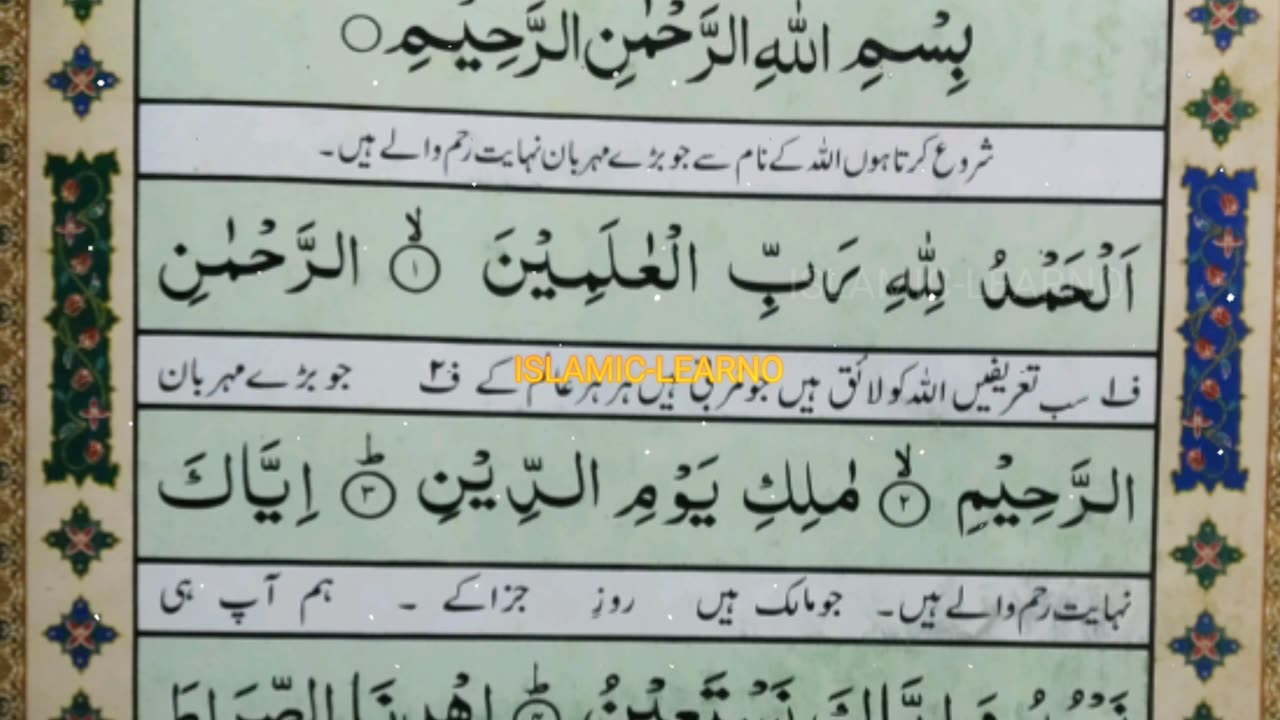 بِسْمِ اللّٰهِ الرَّحْمٰنِ الرَّحِيْمِ ○
شروع کرتا ہوں اللہ کے نام سے جو بڑے مہربان نہایت رحم والے ہیں۔
اَلْحَمْدُ لِلّٰهِ رَبِّ الْعٰلَمِيْنَ ۙ۝۱ الرَّحْمٰنِ
ف۱ سب تعریفیں اللہ کو لائق ہیں جو مربی ہیں ہر ہر عالم کے ف۲ جو بڑے مہربان
ISLAMIC-LEARNO
الرَّحِيْمِ ۙ۝۲ مٰلِكِ يَوْمِ الدِّيْنِ ؕ۝۳ اِيَّاكَ
نہایت رحم والے ہیں۔ جو مالک ہیں روزِ جزا کے ۔ ہم آپ ہی
نَعْبُدُ وَاِيَّاكَ نَسْتَعِيْنُ ؕ۝۴ اِهْدِنَا الصِّرَاطَ